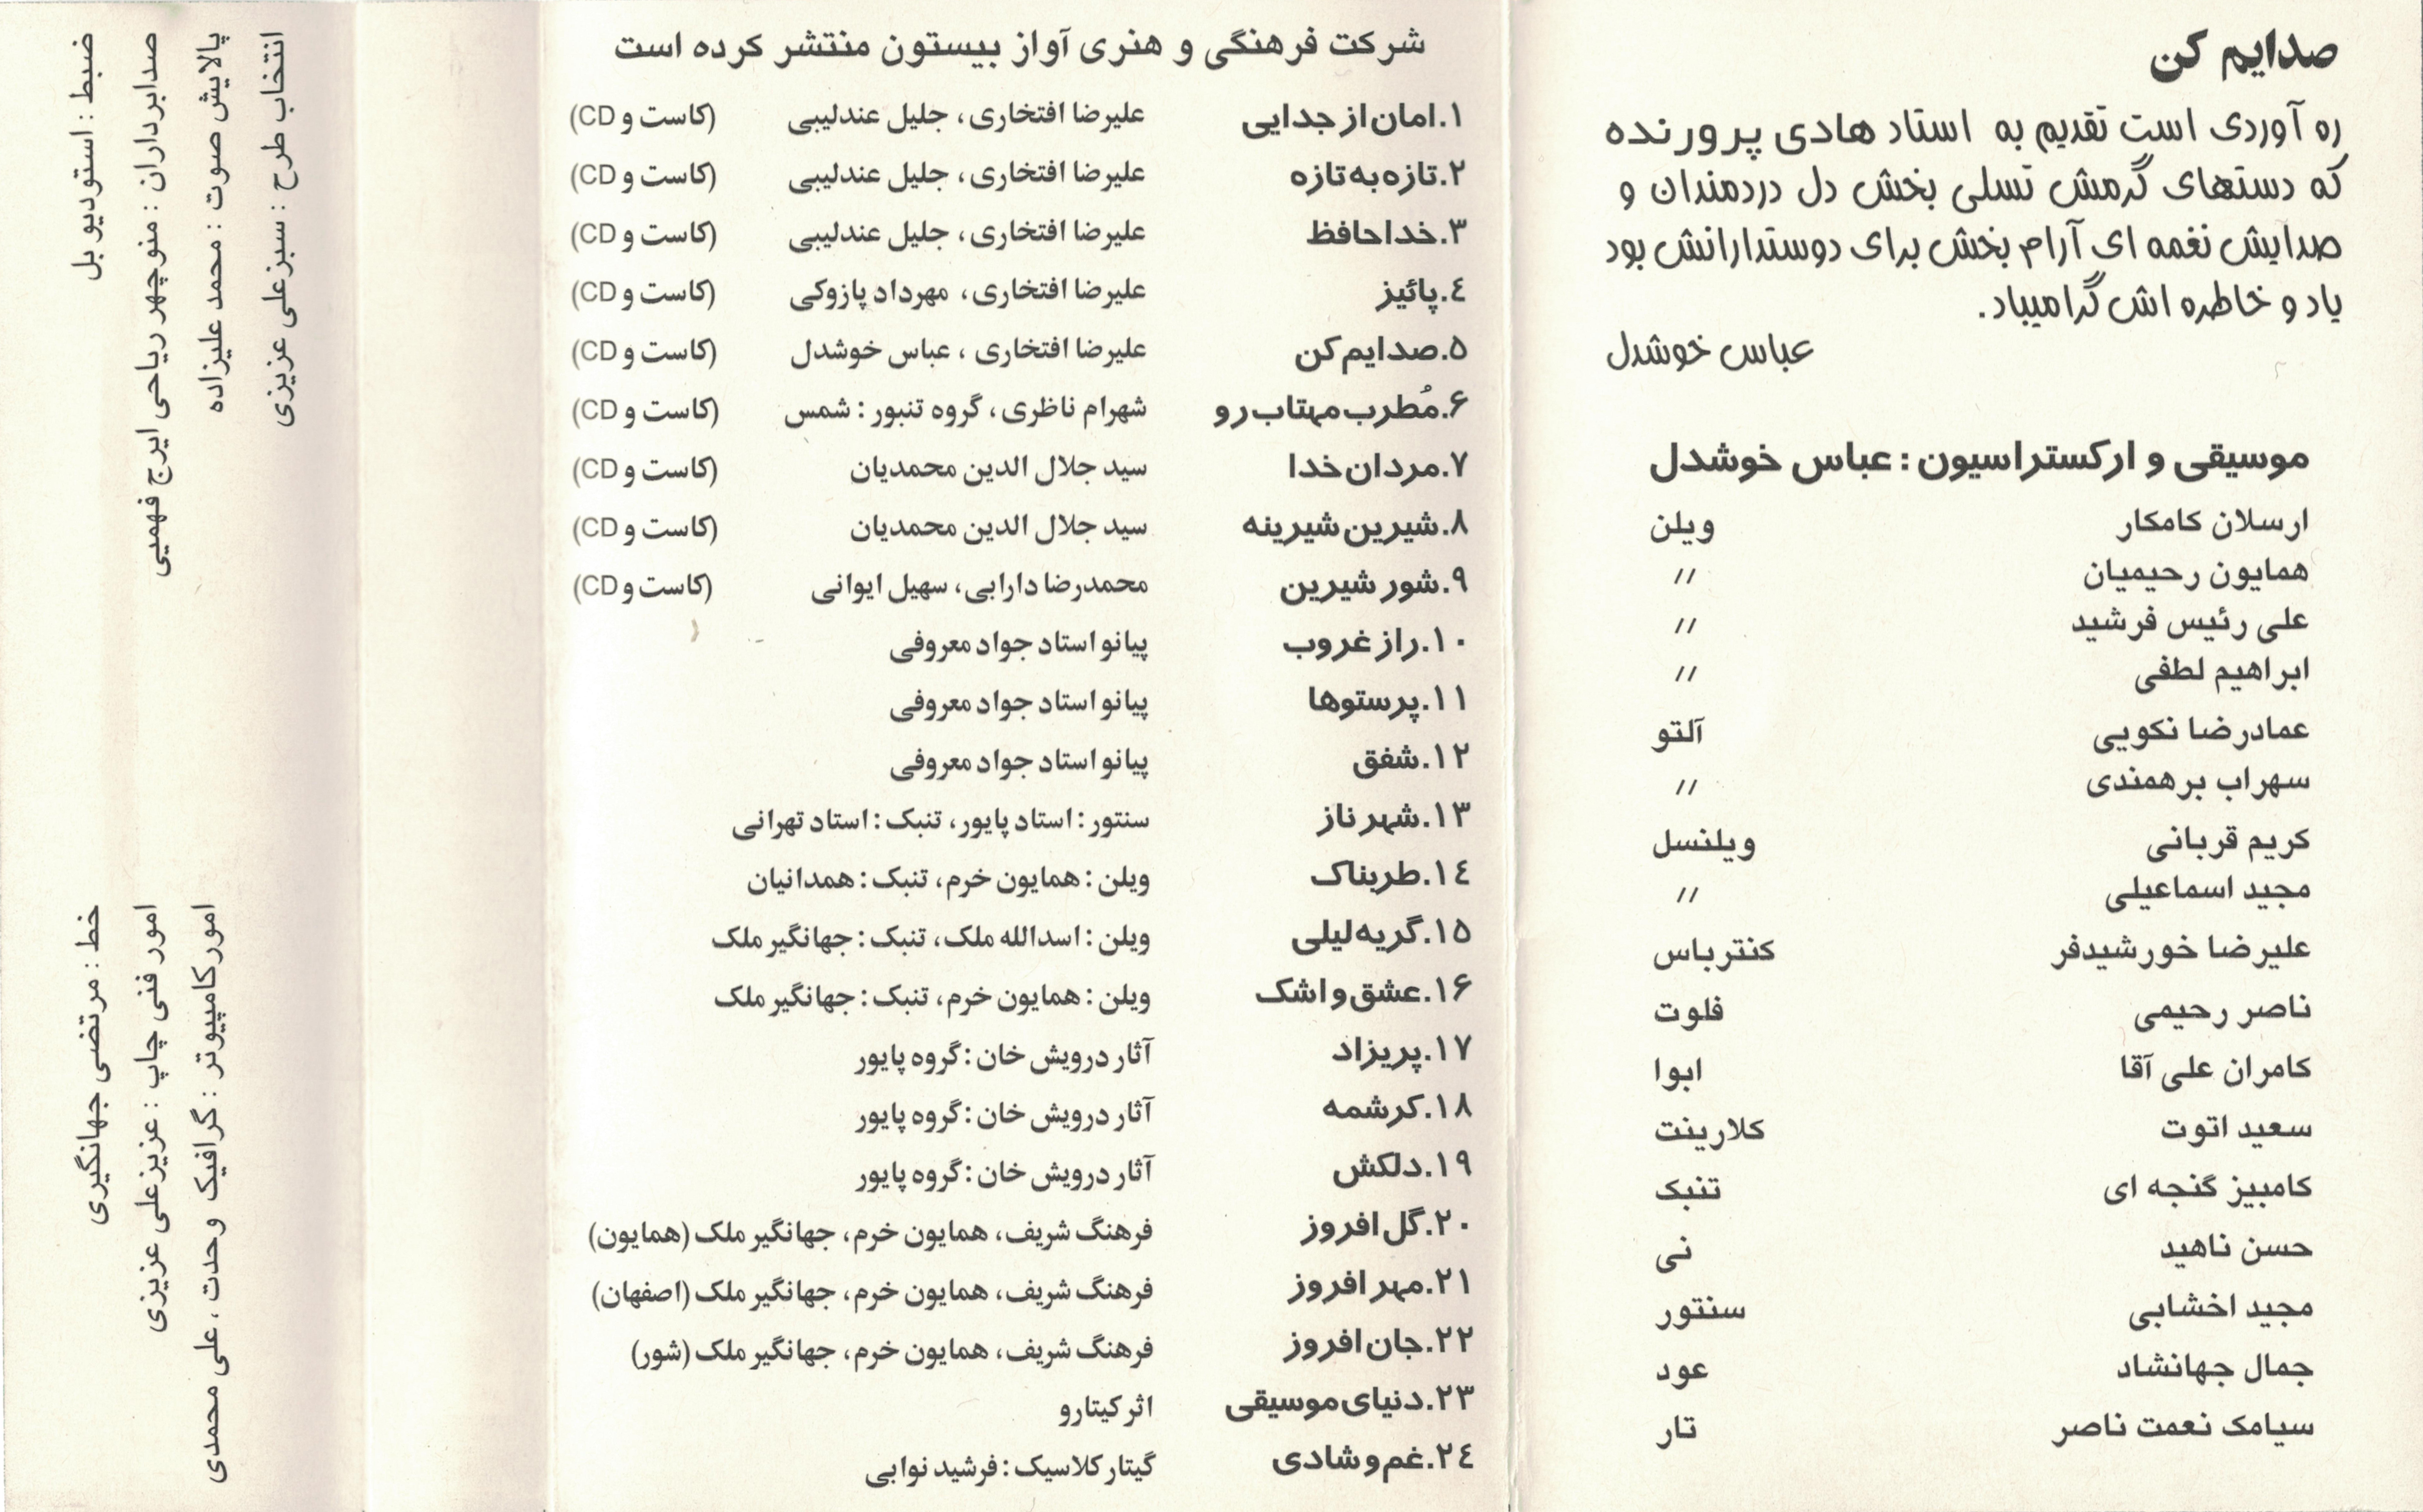 صدایم کن
ره آوردی است تقدیم به استاد هادی پرورنده
که دستهای گرمش تسلی بخش دل دردمندان و
صدایش نغمه ای آرام بخش برای دوستدارانش بود
یاد و خاطره اش گرامیباد.
عباس خوشدل
موسیقی و ارکستراسیون : عباس خوشدل
ارسلان کامکار ویلن
همایون رحیمیان //
علی رئیس فرشید //
ابراهیم لطفی //
عمادرضا نکویی آلتو
سهراب برهمندی //
کریم قربانی ویلنسل
مجید اسماعیلی //
علیرضا خورشیدفر کنترباس
ناصر رحیمی فلوت
کامران علی آقا ابوا
سعید اتوت کلارینت
کامبیز گنجه ای تنبک
حسن ناهید نی
مجید اخشابی سنتور
جمال جهانشاد عود
سیامک نعمت ناصر تار
شرکت فرهنگی و هنری آواز بیستون منتشر کرده است
۱.امان از جدایی علیرضا افتخاری، جلیل عندلیبی (کاست و CD)
۲.تازه به تازه علیرضا افتخاری، جلیل عندلیبی (کاست و CD)
۳.خداحافظ علیرضا افتخاری، جلیل عندلیبی (کاست و CD)
٤.پائیز علیرضا افتخاری، مهرداد پازوکی (کاست و CD)
۵.صدایم کن علیرضا افتخاری ، عباس خوشدل (کاست و CD)
۶.مُطرب مهتاب رو شهرام ناظری، گروه تنبور : شمس (کاست و CD)
۷.مردان خدا سید جلال الدین محمدیان (کاست و CD)
۸.شیرین شیرینه سید جلال الدین محمدیان (کاست و CD)
۹.شور شیرین محمدرضا دارابی، سهیل ایوانی (کاست و CD)
۱۰.راز غروب پیانو استاد جواد معروفی
۱۱.پرستوها پیانو استاد جواد معروفی
۱۲.شفق پیانو استاد جواد معروفی
۱۳.شهرناز سنتور : استاد پایور، تنبک : استاد تهرانی
۱٤.طربناک ویلن : همایون خرم، تنبک : همدانیان
۱۵.گریه لیلی ویلن : اسدالله ملک، تنبک : جهانگیر ملک
۱۶.عشق و اشک ویلن : همایون خرم، تنبک : جهانگیر ملک
۱۷.پریزاد آثار درویش خان : گروه پایور
۱۸.کرشمه آثار درویش خان : گروه پایور
۱۹.دلکش آثار درویش خان : گروه پایور
۲۰.گل افروز فرهنگ شریف، همایون خرم، جهانگیر ملک (همایون)
۲۱.مهر افروز فرهنگ شریف، همایون خرم، جهانگیر ملک (اصفهان)
۲۲.جان افروز فرهنگ شریف، همایون خرم، جهانگیر ملک (شور)
۲۳.دنیای موسیقی اثر کیتارو
۲٤.غم و شادی گیتار کلاسیک : فرشید نوابی
ضبط : استودیو بل
صدابرداران : منوچهر ریاحی ایرج فهمیی
پالایش صوت : محمد علیزاده
انتخاب طرح : سبزعلی عزیزی
خط : مرتضی جهانگیری
امور فنی چاپ : عزیزعلی عزیزی
امورکامپیوتر : گرافیک وحدت ، علی محمدی